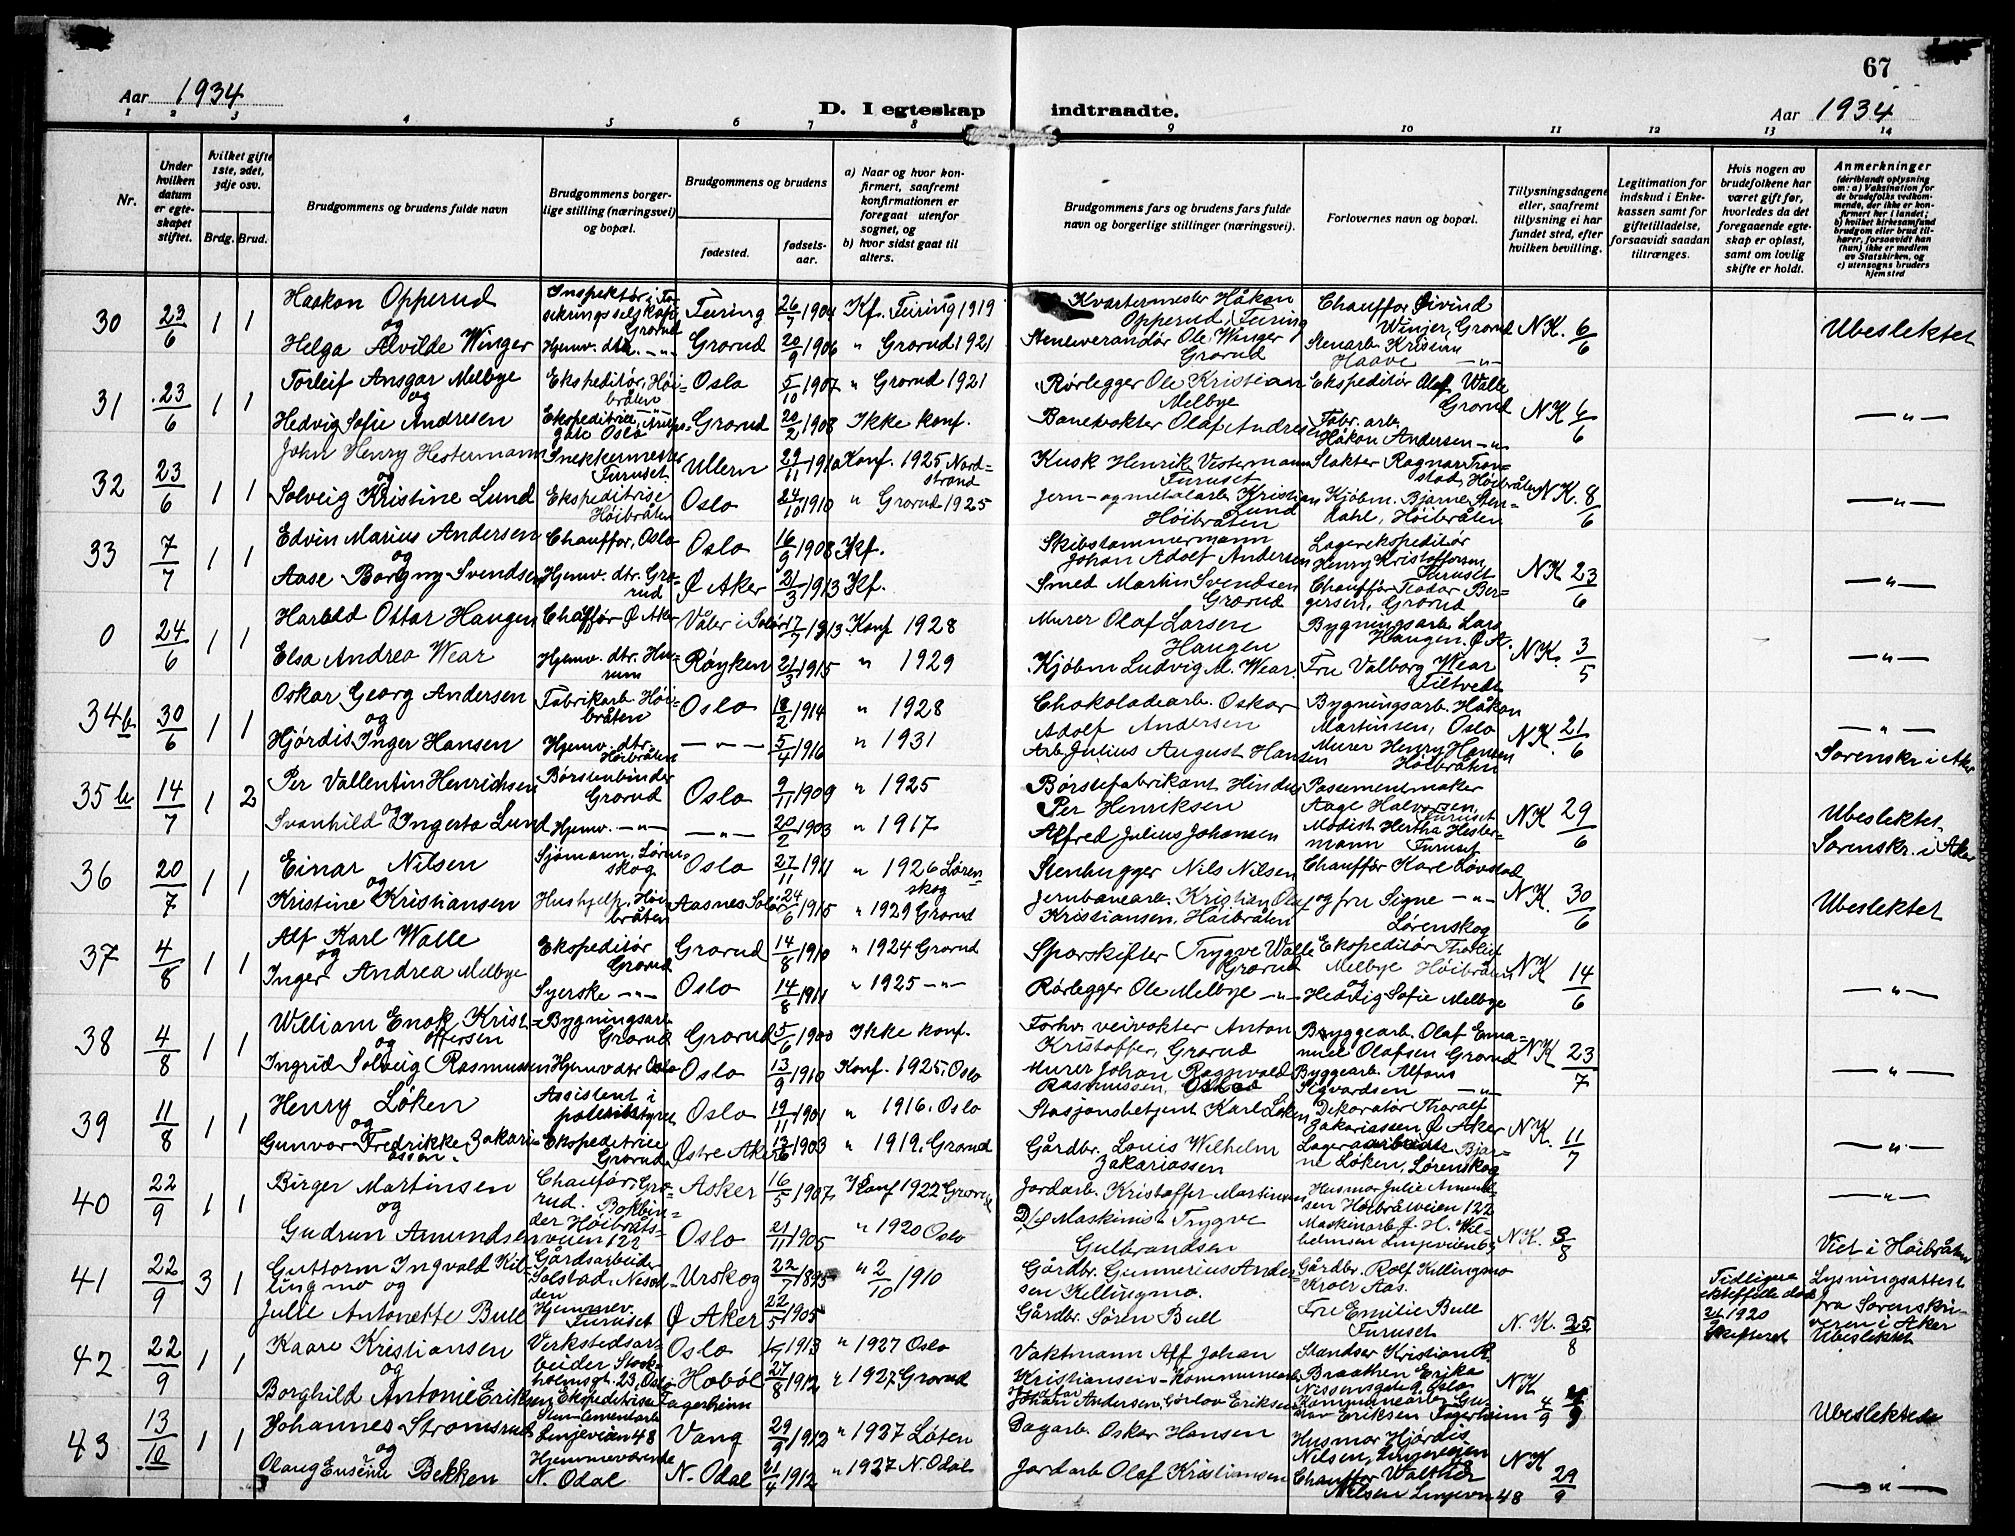 67
Aar 1934
D. I egteskap indtraadte.
Aar 1934
1 2 3 4 5 6 7 8 9 10 11 12 13 14
Nr.
Under hvilken datum er egteskapet stiftet.
hvilket gifte 1ste, 2det, 3dje osv.
Brdg. Brud.
Brudgommens og brudens fulde navn
Brudgommens borgerlige stilling (næringsvei) og bopæl.
Brudgommens og brudens
fødested.
fødselsaar.
a) Naar og hvor konfirmert, saafremt konfirmationen er foregaat utenfor sognet, og
b) hvor sidst gaat til alters.
Brudgommens fars og brudens fars fulde navn og borgerlige stillinger (næringsvei).
Forlovernes navn og bopæl.
Tillysningsdagene eller, saafremt tillysning ei har fundet sted, efter hvilken bevilling.
Legitimation for indskud i Enkekassen samt for giftetilladelse, forsaavidt saadan tiltrænges.
Hvis nogen av brudefolkene har været gift før, hvorledes da det foregaaende egteskap er opløst, samt om lovlig skifte er holdt.
Anmerkninger (deriblandt oplysning om: a) Vaksination for de brudefolks vedkommende, der ikke er konfirmert her i landet; b) hvilket kirkesamfund brudgom eller brud tilhører, forsaavidt han (hun) ikke er medlem av Statskirken, og c) utensogns bruders hjemsted
30 23/6 1 1 Haakon Opperud Inspektør i Forsikringsselskap, Grorud Feiring 26/7 1904 Kf. Feiring 1919 Kvartermester Håkon Opperud, Feiring Chauffør Øivind Winjer, Grorud N.K. 6/6 Ubeslektet
og
Helga Alvilde Winger Hjemv. dtr. -"- Grorud 20/9 1906 " Grorud 1921 Stenleverandør Ole Winger Grorud Stenarb. Kristian Haave -"-
31 23/6 1 1 Torleif Ansgar Melbye Ekspeditør, Høibråten Oslo 5/10 1907 " Grorud 1921 Rørlegger Ole Kristian Melbye Ekspeditør Olaf Walle Grorud N.K. 6/6 -"-
og
Hedvig Sofie Andresen Ekspeditrise, gate Oslo Grorud 20/2 1908 Ikke konf. Banevokter Olaf Andresen Fabr. arb. Håkon Andersen -"-
32 23/6 1 1 John Henry Hestermann Snekkermester Furuset Ullern 29/11 1910 Konf. 1925 Nordstrand Kusk Henrik Vestermann Furuset Slakter Ragnar Tronstad, Høibråten N.K. 8/6 -"-
og
Solveig Kristine Lund Ekspeditrise Høibråten Oslo 24/10 1910 " Grorud 1925 Jern- og metalarb. Kristian Lund Høibråten Kjøbm. Bjarne Amdahl, Høibråten
33 7/7 1 1 Edvin Marius Andersen Chauffør, Oslo Oslo 16/9 1908 Kf. Skibstømmermann Johan Adolf Andersen Lagerekspeditør Henry Kristoffersen, Furuset N.K. 23/6 -"-
og
Aase Borgny Svendsen Hjemv. dtr. Grorud Ø Aker 21/3 1913 Kf. Smed Martin Svendsen Grorud Chauffør Teodor Bergersen, Grorud
0 24/6 1 1 Harald Ottar Haugen Chauffør Ø Aker Våler i Solør 17/7 1913 Konf 1928 Murer Olaf Larsen Haugen Bygningsarb Lars Haugen, Ø.A. N.K. 3/5 -"-
Elsa Andrea Wear Hjemv. dtr. Husum Røyken 21/3 1915 " 1929 Kjøbm Ludvig M. Wear Fru Valborg Wear Tiltvedt
34b 30/6 1 1 Oskar Georg Andersen Fabrikarb. Høibråten Oslo 18/2 1914 " 1928 Chokoladearb. Oskar Adolf Andersen Bygningsarb. Håkon Martinsen, Oslo N.K. 21/6 -"-
og
Hjørdis Inger Hansen Hjemv. dtr. Høibråten -"- 5/4 1916 " 1931 Arb. Julius August Hansen Murer Henry Hansen Høibråten Sorenskr. i Aker
35b 14/7 1 2 Per Vallentin Henrichsen Børstenbinder Grorud Oslo 9/11 1909 " 1925 Børstefabrikant Hinder Per Henriksen Passementmaker Aage Halvorsen, Furuset N.K. 29/6 Ubeslektet.
og
Svanhild Ingerta Lund Hjemv. -"- -"- 20/2 1903 " 1917 Alfred Julius Johansen Modist Hertha Hestermann Furuset Sorenskr. i Aker
36 20/7 1 1 Einar Nilsen Sjømann, Lørenskog Oslo 27/11 1911 " 1926 Lørenskog Stenhugger Nils Nilsen Chauffør Kare Løvstad N.K. 30/6 Ubeslektet
og
Kristine Kristiansen Hushjelp, Høibråten Aasnes Solør 24/6 1915 " 1929 Grorud Jernbanearb. Kristian Olaf Kristiansen, Høibråten og fru Signe -"- Lørenskog
37 4/8 1 1 Alf Karl Walle Ekspeditør Grorud Grorud 14/8 1910 " 1924 Grorud Sporskifter Trygve Walle Grorud Ekspeditør Thorleif Melbye Høibråten N.K. 14/6 -"-
og
Inger Andrea Melbye Syerske -"- Oslo 14/8 1911 " 1925 -"- Rørlegger Ole Melbye -"- og Hedvig Sofie Melbye
38 4/8 1 1 William Enok Kristoffersen Bygningsarb Grorud Grorud 5/6 1900 Ikke konf. Forhv. veivokter Anton Kristoffer, Grorud Byggearb. Olaf Emanuel Olafsen Grorud N.K. 23/7 -"-
og
Ingrid Solveig Rasmussen Hjemv dtr Oslo Oslo 13/9 1910 Konf. 1925, Oslo Murer Johan Ragnvald Rasmussen, Oslo Byggearb. Alfons Sigvardsen -"-
39 11/8 1 1 Henry Løken Assistent i politistyret Oslo 19/11 1901 " 1916. Oslo Stasjonsbetjent Karl Løken Dekoratør Thoralf Zakariassen, Ø Aker N.K. 11/7 -"-
og
Gunvor Fredrikke Zakariassen. Ekspeditrice Grorud Østre Aker 12/6 1903 " 1919, Grorud Gårdbr. Louis Wilhelm Zakariassen Lagerarbeider Bjarne Løken, Lørenskog
40 22/9 1 1 Birger Martinsen Chaufør, Grorud. Asker 16/5 1907 Konf 1922 Grorud Jordarb. Kristoffer Martinsen Husmor Julie Amundsen Høibråtveien 122 N.K. 3/8 -"-
og
Gudrun Amundsen Bokbinder Høibråtsveien 122 Oslo 21/11 1905 " 1920 Oslo D/f Maskinist Trygve Gulbrandsen Maskinarb. J. H. Wilhelmsen Linjeveien Viet i Høibråten
41 22/9 3 1 Guttorm Ingvald Killingmo og Gårdsarbeider Solstad, Nesodden Urskog 22/7 1895 " 2/10 1910 Gårdbr. Gunnerius Andersen Killingmo. Gårdbr. Rolf Killingmo Kroer Aas. N.K. 25/8 Tidligere ektefelle død 1920 Skifteret Lysningsattest fra Sorenskriveren i Aker Ubeslektet
Julie Antonette Bull Hjemmev. Furuset Ø Aker 22/5 1905 Gårdbr. Søren Bull Fru Emilie Bull Furuset
42 22/9 1 1 Kaare Kristiansen Verkstedsarbeider Stockholmsgt. 23, Oslo Oslo 1913 " 1927 Oslo Vaktmann Alf Johan Kristiansen Standser Kristian R. Braathen Erika Nissensgate 9, Oslo N.K. 4/9
og
Borghild Antonie Eriksen Ekspeditrise Fagerheim Hobøl 27/8 1912 " 1927 Grorud Kommunearb. Johan Andersen Gørlov Eriksen Kommunearb. Gustav Eriksen Fagerheim 4/9 Ubeslektede
43 13/10 1 1 Johannes Strømsrud Sten-Cementarb. Linjeveien 48 Vang 29/9 1912 " 1927 Løten Dagarb. Oskar Hansen Husmor Hjørdis Nilsen, Linjeveien N.K. 29/9
og
Olaug Eusenie Bekken Hjemmeværende N. Odal N. Odal 21/4 1912 " 1927 N. Odal Jordarb Olaf Kristiansen Chauffør Walther Nilsen Linjevn 48 -"-